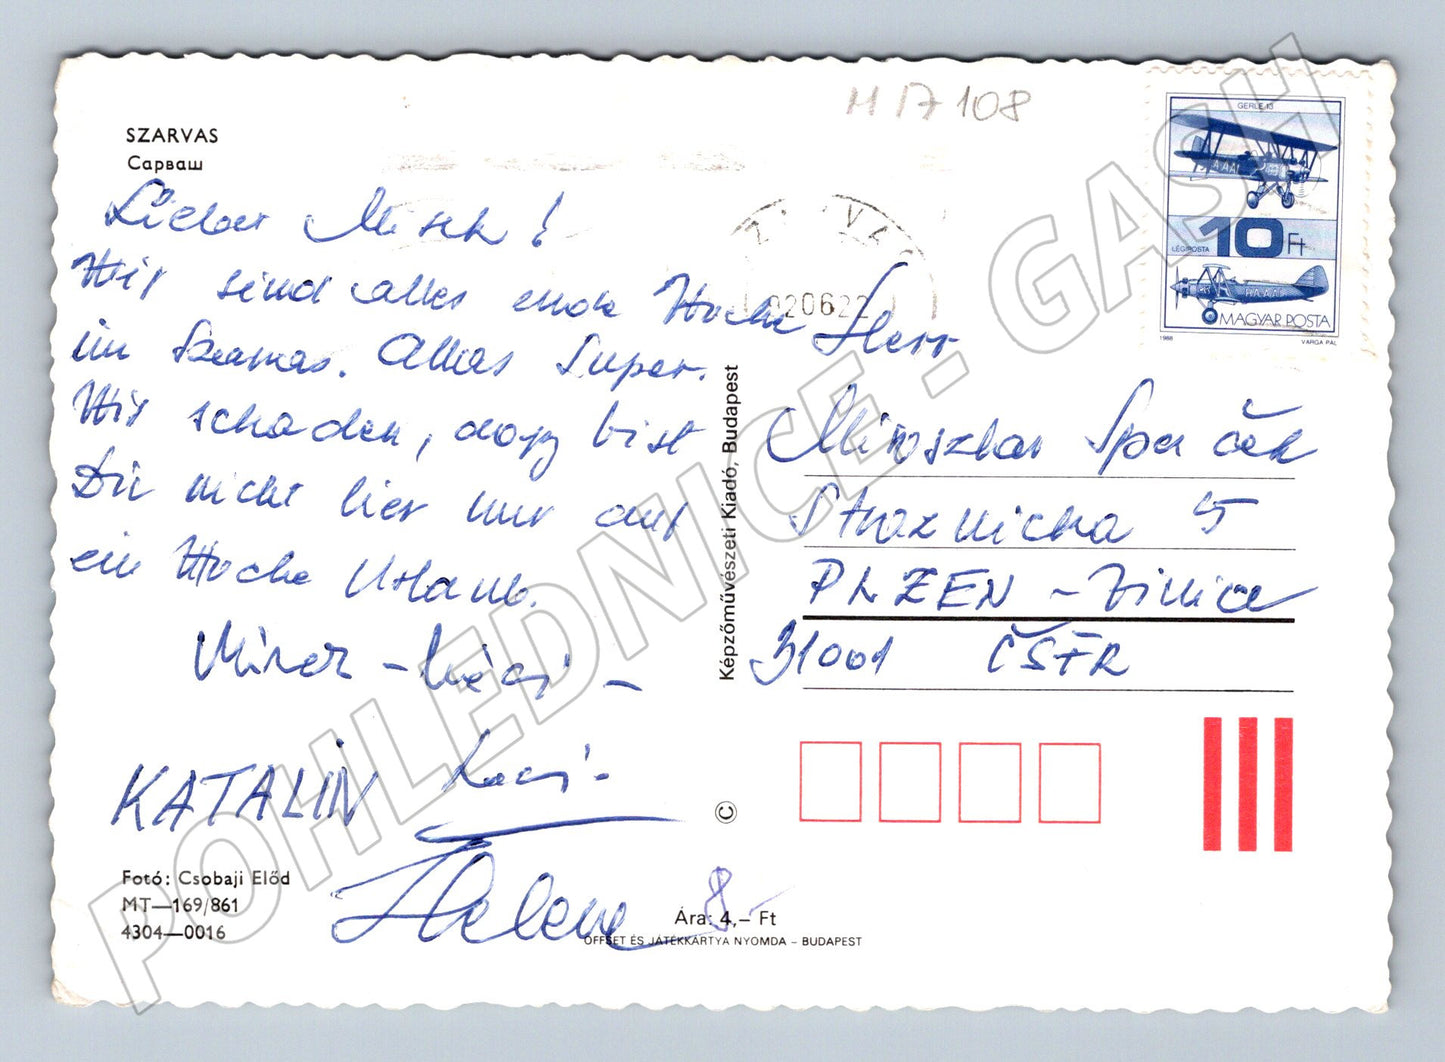 SZARVAS
Сарваш
Lieber Misch!
Wir sind alles ende Woche
im Szarvas. Alles Super.
Wir schaden, dasz bist
Du nicht hier nur auf
ein Woche Urlaub.
KATALIN Laci
Helene
Fotó: Csobaji Előd
MT—169/861
4304—0016
Ára: 4,– Ft
8.-
OFFSET ÉS JÁTÉKKÁRTYA NYOMDA – BUDAPEST
Képzőművészeti Kiadó, Budapest
©
M 17 108
SZARVAS
920622
GERLE 13
LÉGIPOSTA 10 Ft
MAGYAR POSTA
1988 VARGA PÁL
Herr
Miroszlav Spaček
Straznicka 5
PLZEN – Vinice
31001 ČSFR
POHLEDNICE - GASH